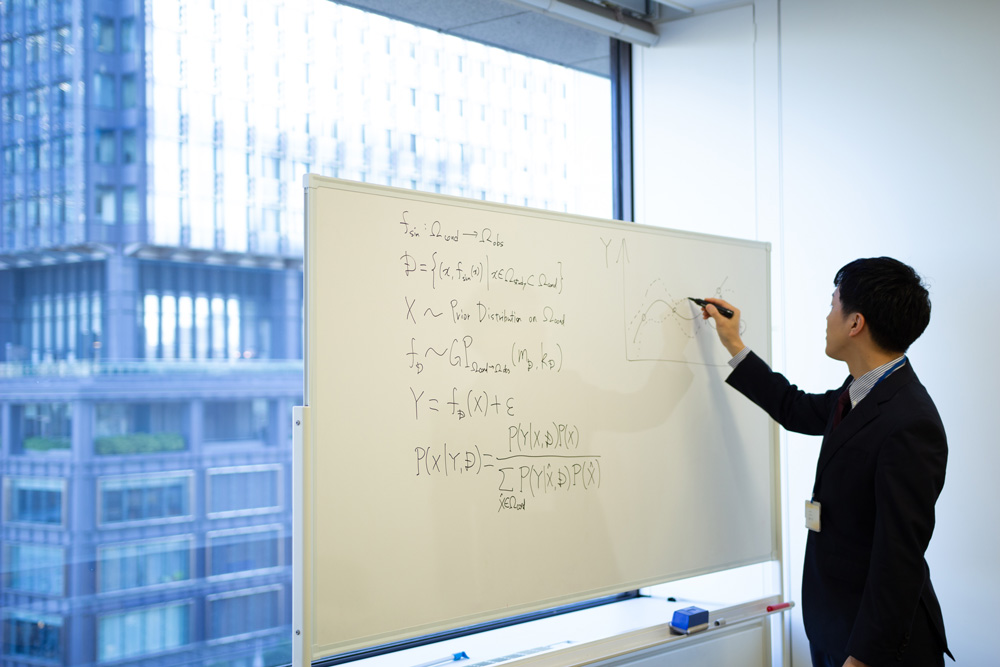 f_sim : Ω_cond → Ω_obs
Đ = {(x, f_sim(x)) | x ∈ Ω_study ⊂ Ω_cond}
X ~ Prior Distribution on Ω_cond
f_Đ ~ GP_Ω_cond→Ω_obs (m_Đ, k_Đ)
Y = f_Đ(X) + ε
P(X|Y,Đ) = P(Y|X,Đ)P(X) / Σ_x̂∈Ω_cond P(Y|X̂,Đ)P(X̂)
Y